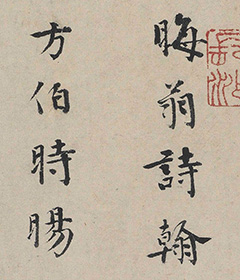 晦翁詩翰
方伯時暘